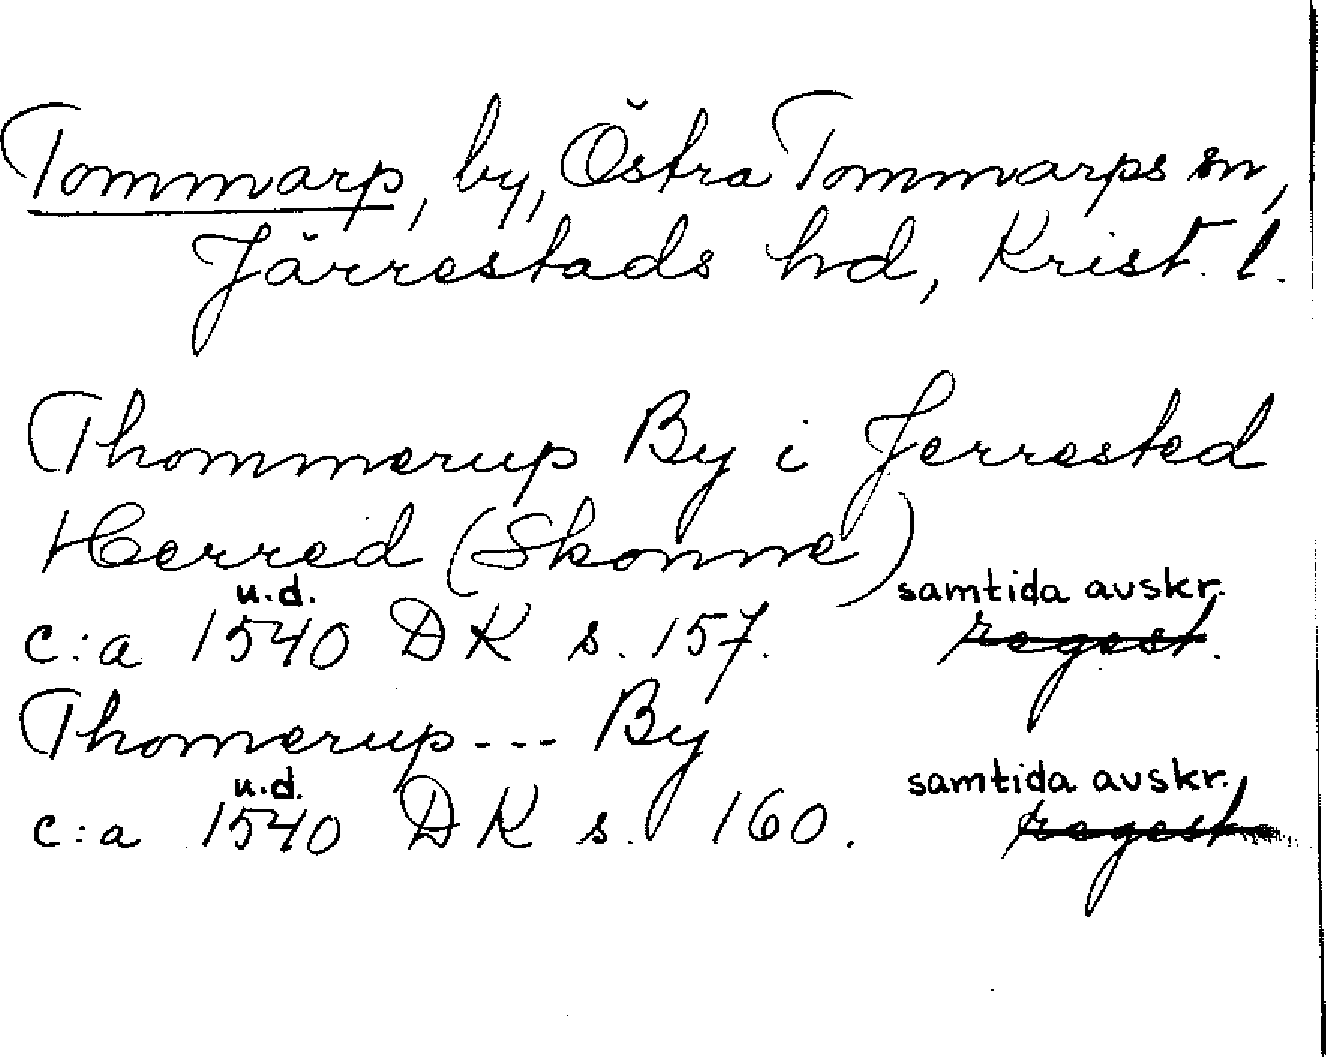 Tommarp, by, Östra Tommarps sn,
Järrestads hd, Krist. l.
Thommerup By i Jerrested
Herred (Skonne)
u.d. samtida avskr.
c:a 1540 DK s. 157. regest.
Thomerup --- By
u.d. samtida avskr.
c:a 1540 DK s. 160. regest